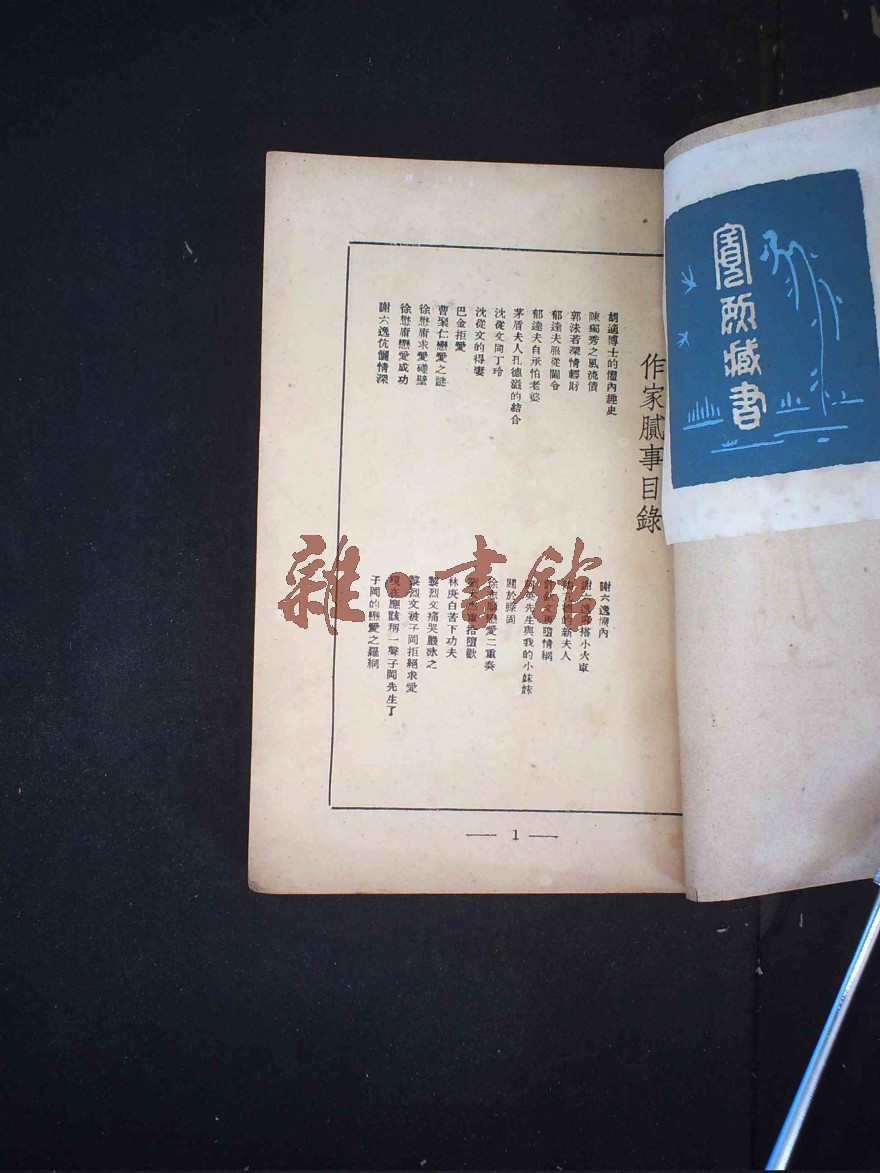 作家膩事目錄
胡適博士的懼內趣史
陳獨秀之風流債
郭沫若深情輕財
郁達夫服從閫令
郁達夫自承怕老婆
茅盾夫人孔德沚的結合
沈從文同丁玲
沈從文的得妻
巴金拒愛
曹聚仁戀愛之謎
徐懋庸求愛碰壁
徐懋庸戀愛成功
謝六逸伉儷情深
謝六逸懼內
謝六逸 搭小火車
的新夫人
文再墮情網
先生與我的小妹妹
關於滕固
徐志摩戀愛二重奏
重拾墮歡
林庚白苦下功夫
黎烈文痛哭嚴冰之
黎烈文被子岡拒絕求愛
現在應該稱一聲子岡先生了
子岡的戀愛之羅網
— 1 —
藏書
雜·書館